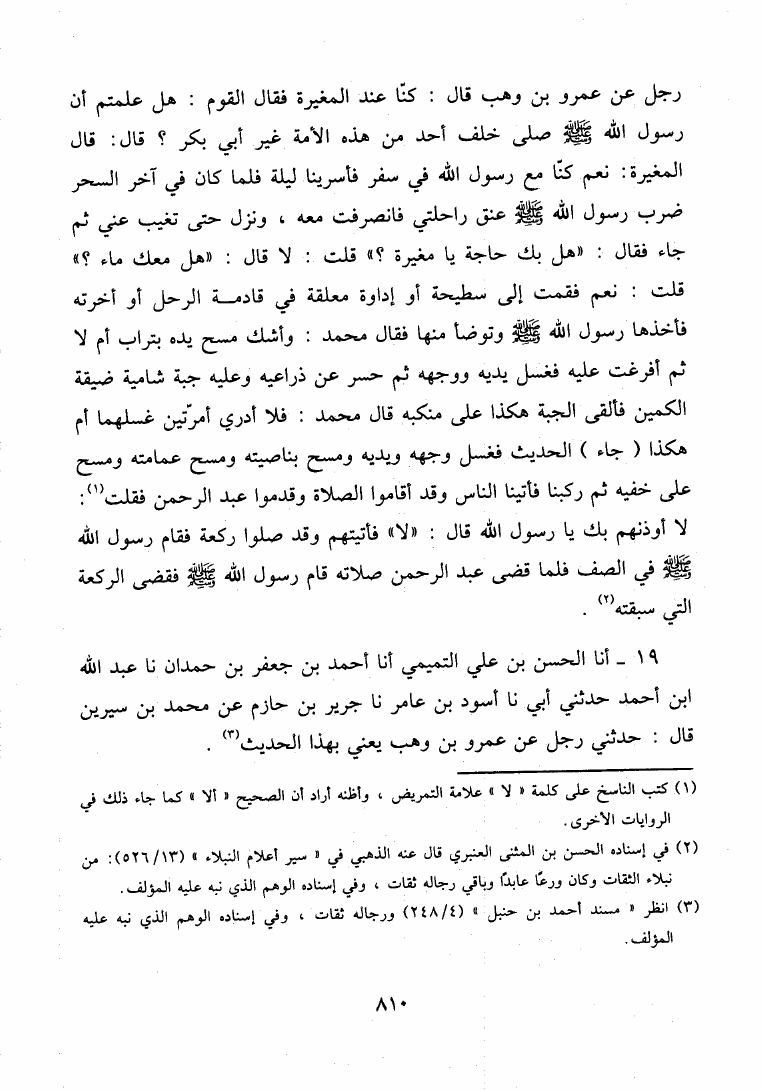 رجل عن عمرو بن وهب قال : كنّا عند المغيرة فقال القوم : هل علمتم أن
رسول الله ﷺ صلى خلف أحد من هذه الأمة غير أبي بكر ؟ قال: قال
المغيرة: نعم كنّا مع رسول الله في سفر فأسرينا ليلة فلما كان في آخر السحر
ضرب رسول الله ﷺ عنق راحلتي فانصرفت معه ، ونزل حتى تغيب عني ثم
جاء فقال : «هل بك حاجة يا مغيرة ؟» قلت : لا قال : «هل معك ماء ؟»
قلت : نعم فقمت إلى سطيحة أو إداوة معلقة في قادمـــة الرحل أو أخرته
فأخذها رسول الله ﷺ وتوضأ منها فقال محمد : وأشك مسح يده بتراب أم لا
ثم أفرغت عليه فغسل يديه ووجهه ثم حسر عن ذراعيه وعليه جبة شامية ضيقة
الكمين فألقى الجبة هكذا على منكبه قال محمد : فلا أدري أمرّتين غسلهما أم
هكذا ( جاء ) الحديث فغسل وجهه ويديه ومسح بناصيته ومسح عمامته ومسح
على خفيه ثم ركبنا فأتينا الناس وقد أقاموا الصلاة وقدموا عبد الرحمن فقلت(١):
لا أوذنهم بك يا رسول الله قال : «لا» فأتيتهم وقد صلوا ركعة فقام رسول الله
ﷺ في الصف فلما قضى عبد الرحمن صلاته قام رسول الله ﷺ فقضى الركعة
التي سبقته(٢) .
١٩ ـ أنا الحسن بن علي التميمي أنا أحمد بن جعفر بن حمدان نا عبد الله
ابن أحمد حدثني أبي نا أسود بن عامر نا جرير بن حازم عن محمد بن سيرين
قال : حدثني رجل عن عمرو بن وهب يعني بهذا الحديث(٣) .
(١) كتب الناسخ على كلمة « لا » علامة التمريض ، وأظنه أراد أن الصحيح « ألا » كما جاء ذلك في
الروايات الأخرى.
(٢) في إسناده الحسن بن المثنى العنبري قال عنه الذهبي في « سير أعلام النبلاء » (٥٢٦/١٣): من
نبلاء الثقات وكان ورعًا عابدًا وباقي رجاله ثقات ، وفي إسناده الوهم الذي نبه عليه المؤلف.
(٣) انظر « مسند أحمد بن حنبل » (٢٤٨/٤) ورجاله ثقات ، وفي إسناده الوهم الذي نبه عليه
المؤلف.
٨١٠